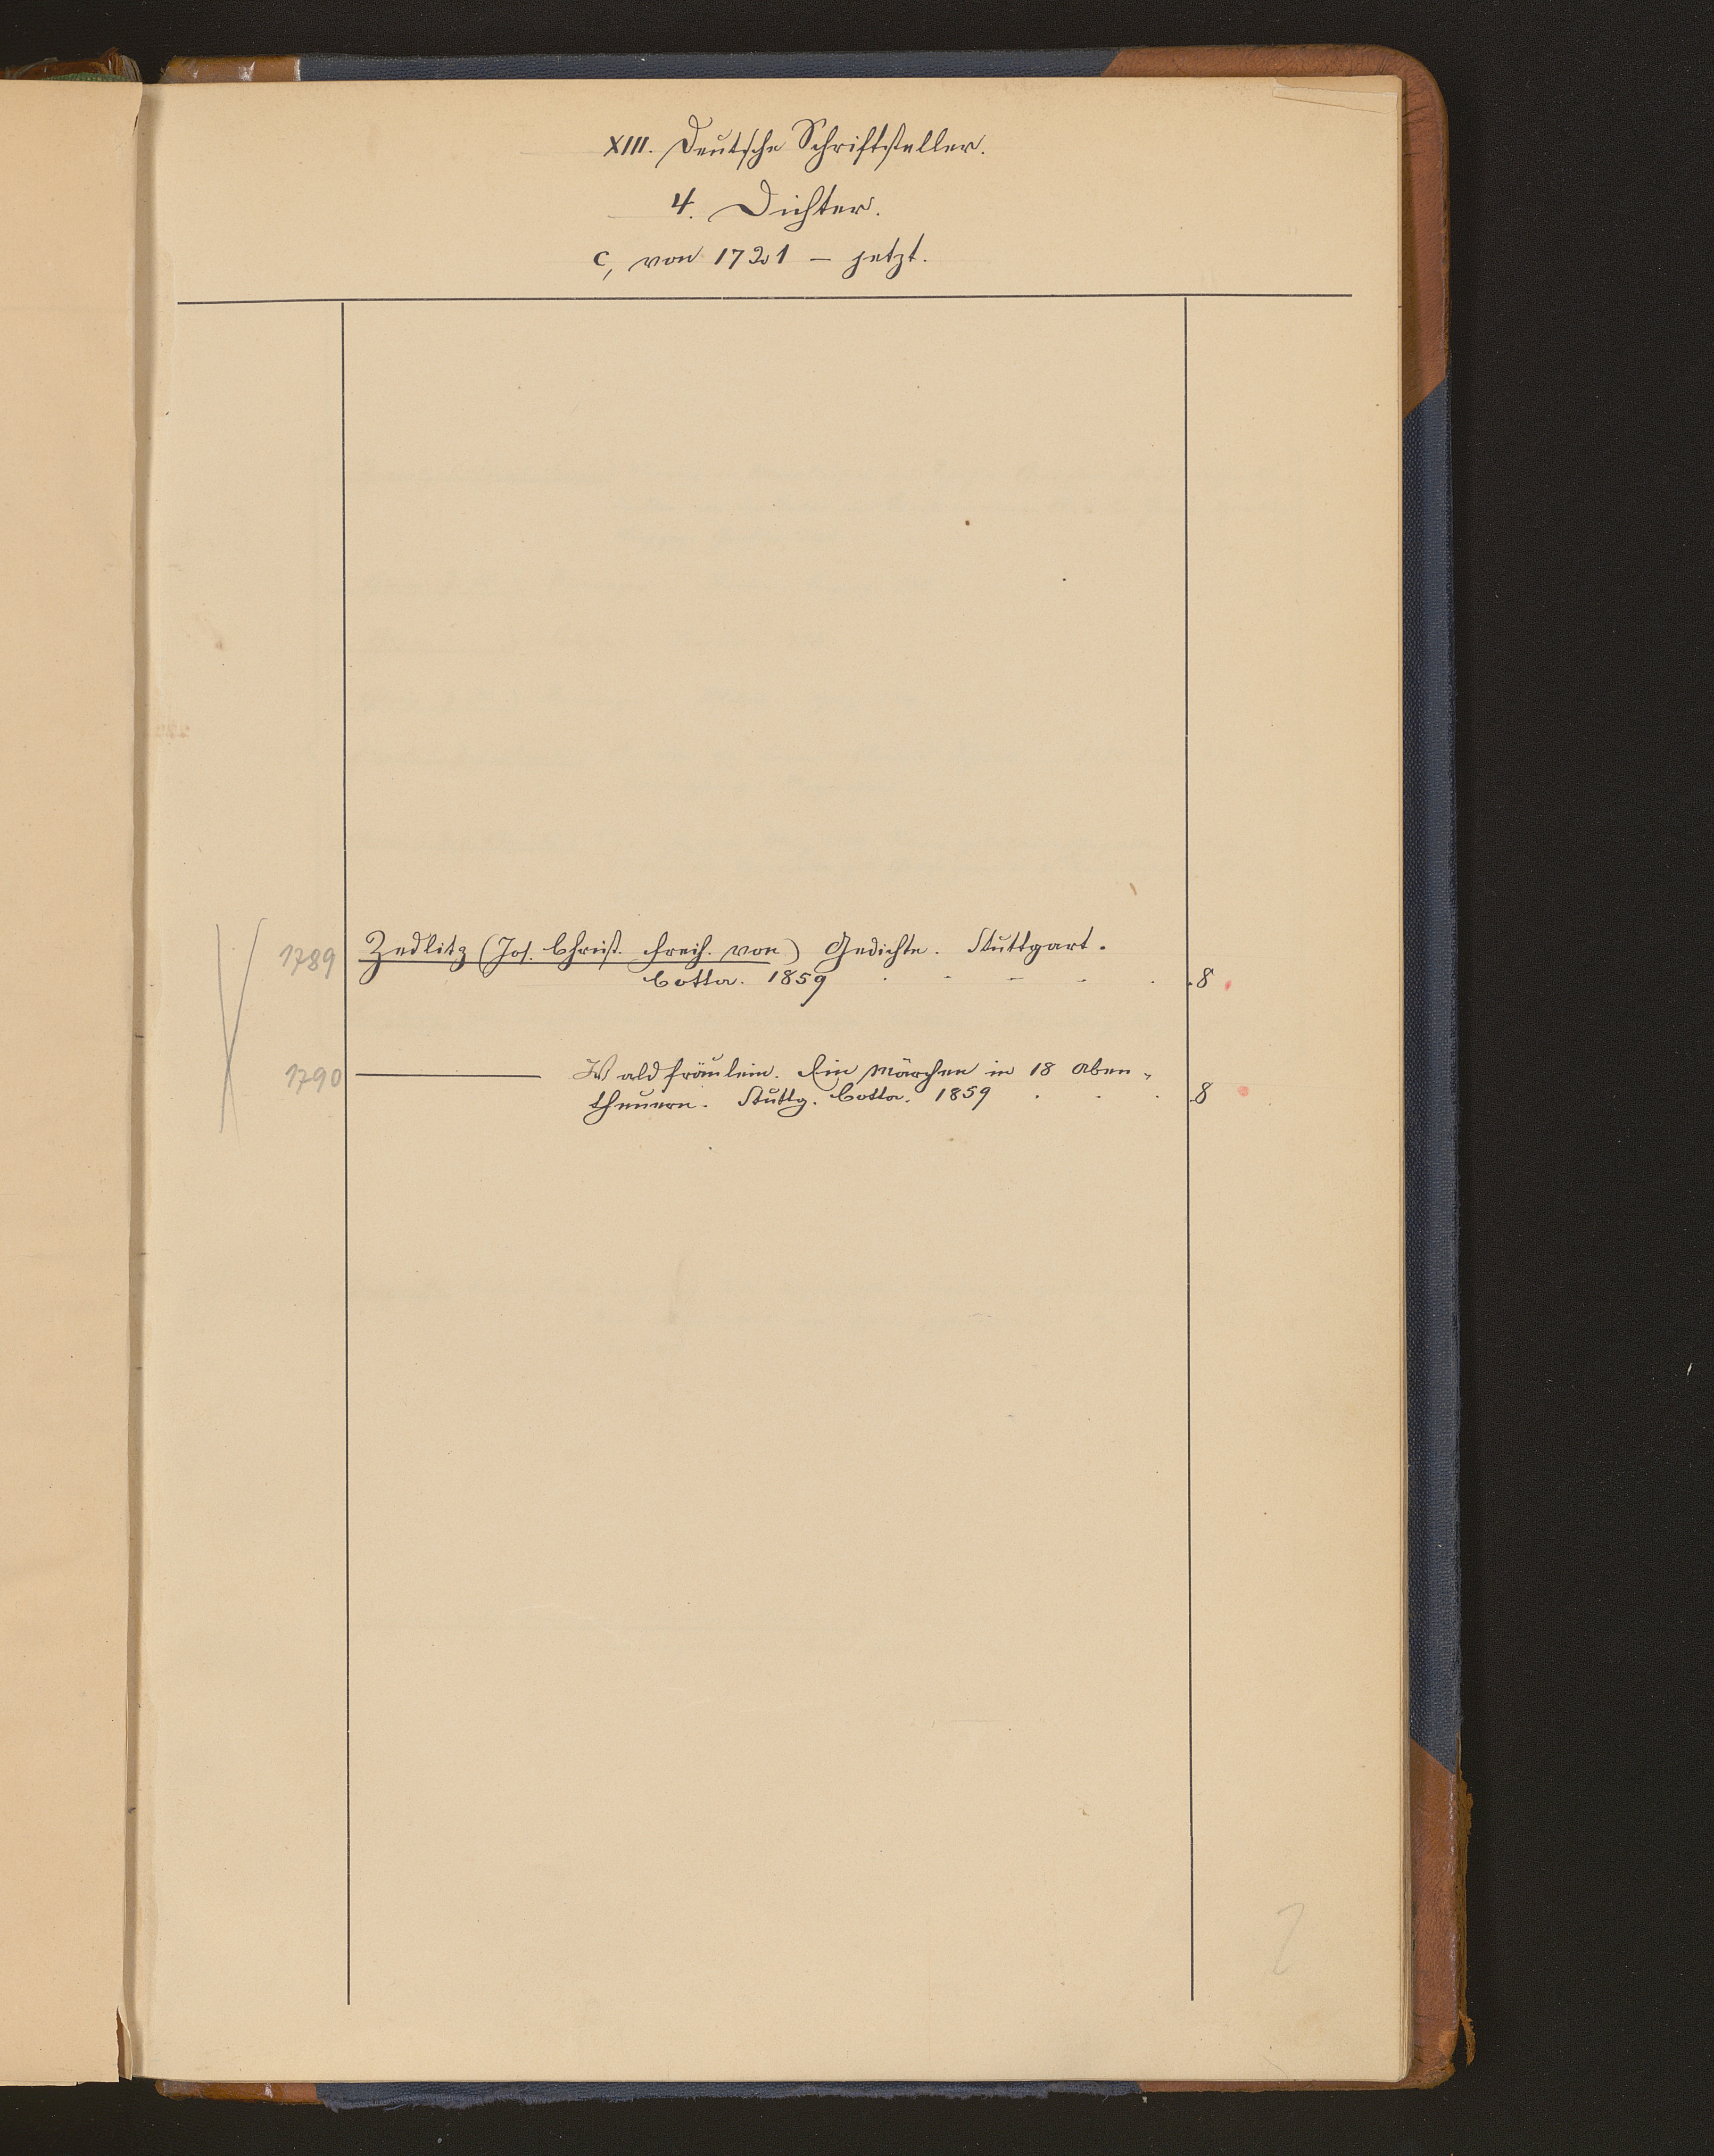 XIII. Deutsche Schriftsteller.
4. Dichter.
c, von 1721 – jetzt.
1789 Zedlitz (Jos. Christ. Freih. von) Gedichte. Stuttgart.
Cotta. 1859 . - – - . .8
1790 ——— Waldfräulein. Ein Märchen in 18 Aben-
theuern. Stuttg. Cotta. 1859 . . . .8